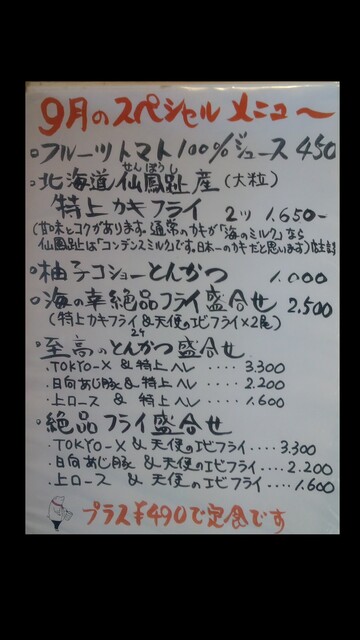 9月のスペシャルメニュ〜
・フルーツトマト100%ジュース 450
せんぽうし
・北海道仙鳳趾産(大粒)
特上カキフライ 2ツ 1.650-
(甘味とコクがあります。通常のカキが「海のミルク」なら
仙鳳趾は「コンデンスミルク」です。日本一のカキだと思います)
・柚子コショーとんかつ 1.000
・海の幸絶品フライ盛合せ 2.500
(特上カキフライ&天使のエビフライ×2尾)
2ケ
・至高のとんかつ盛合せ
.TOKYO-X & 特上ヘレ ‥‥ 3.300
.日向あじ豚 & 特上ヘレ ‥‥ 2.200
.上ロース & 特上ヘレ ‥‥ 1.600
・絶品フライ盛合せ
.TOKYO-X & 天使のエビフライ ‥‥ 3.300
.日向あじ豚 & 天使のエビフライ ‥‥ 2.200
.上ロース & 天使のエビフライ ‥‥ 1.600
プラス¥490で定食です